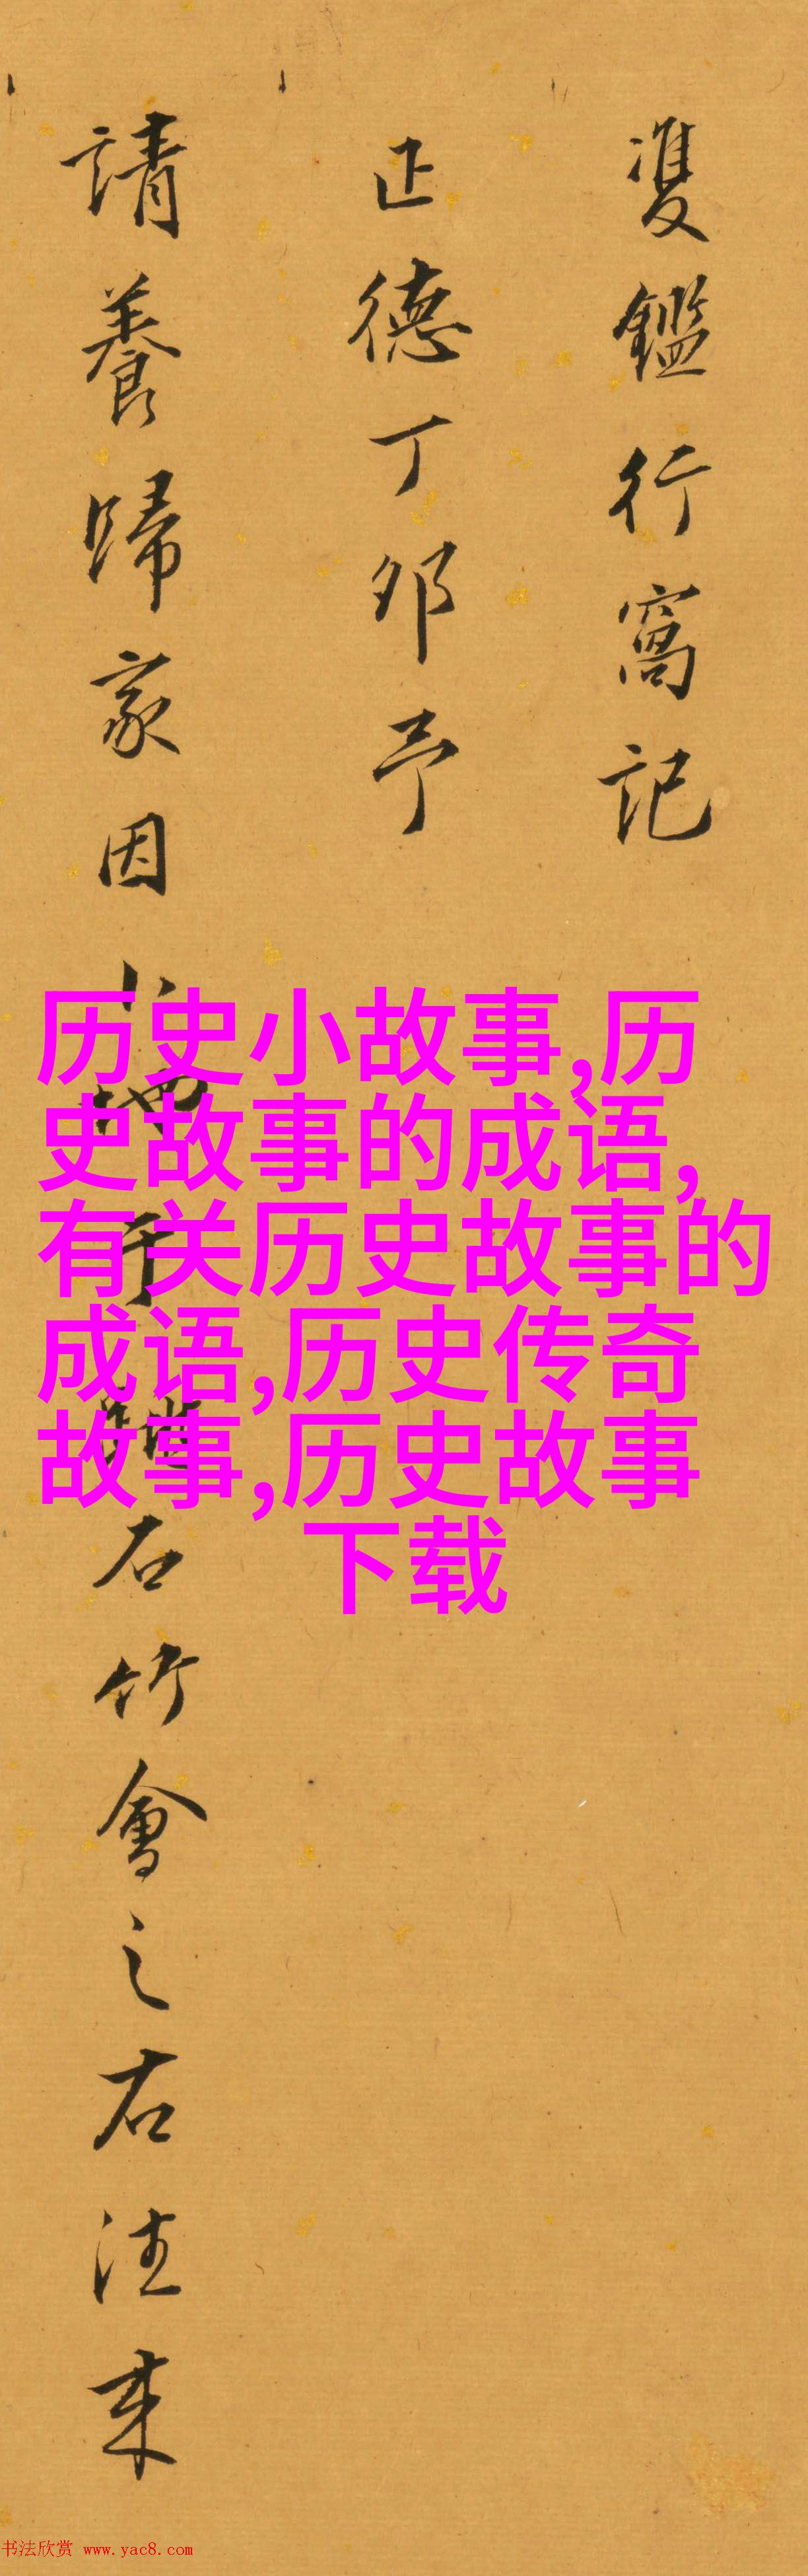 雙鑑行窩記
正德丁卯予
請養歸家因
石竹會之右往来
历史小故事,历
史故事的成语,
有关历史故事的
成语,历史传奇
故事,历史故事
下载
书法欣赏 www.yac8.com